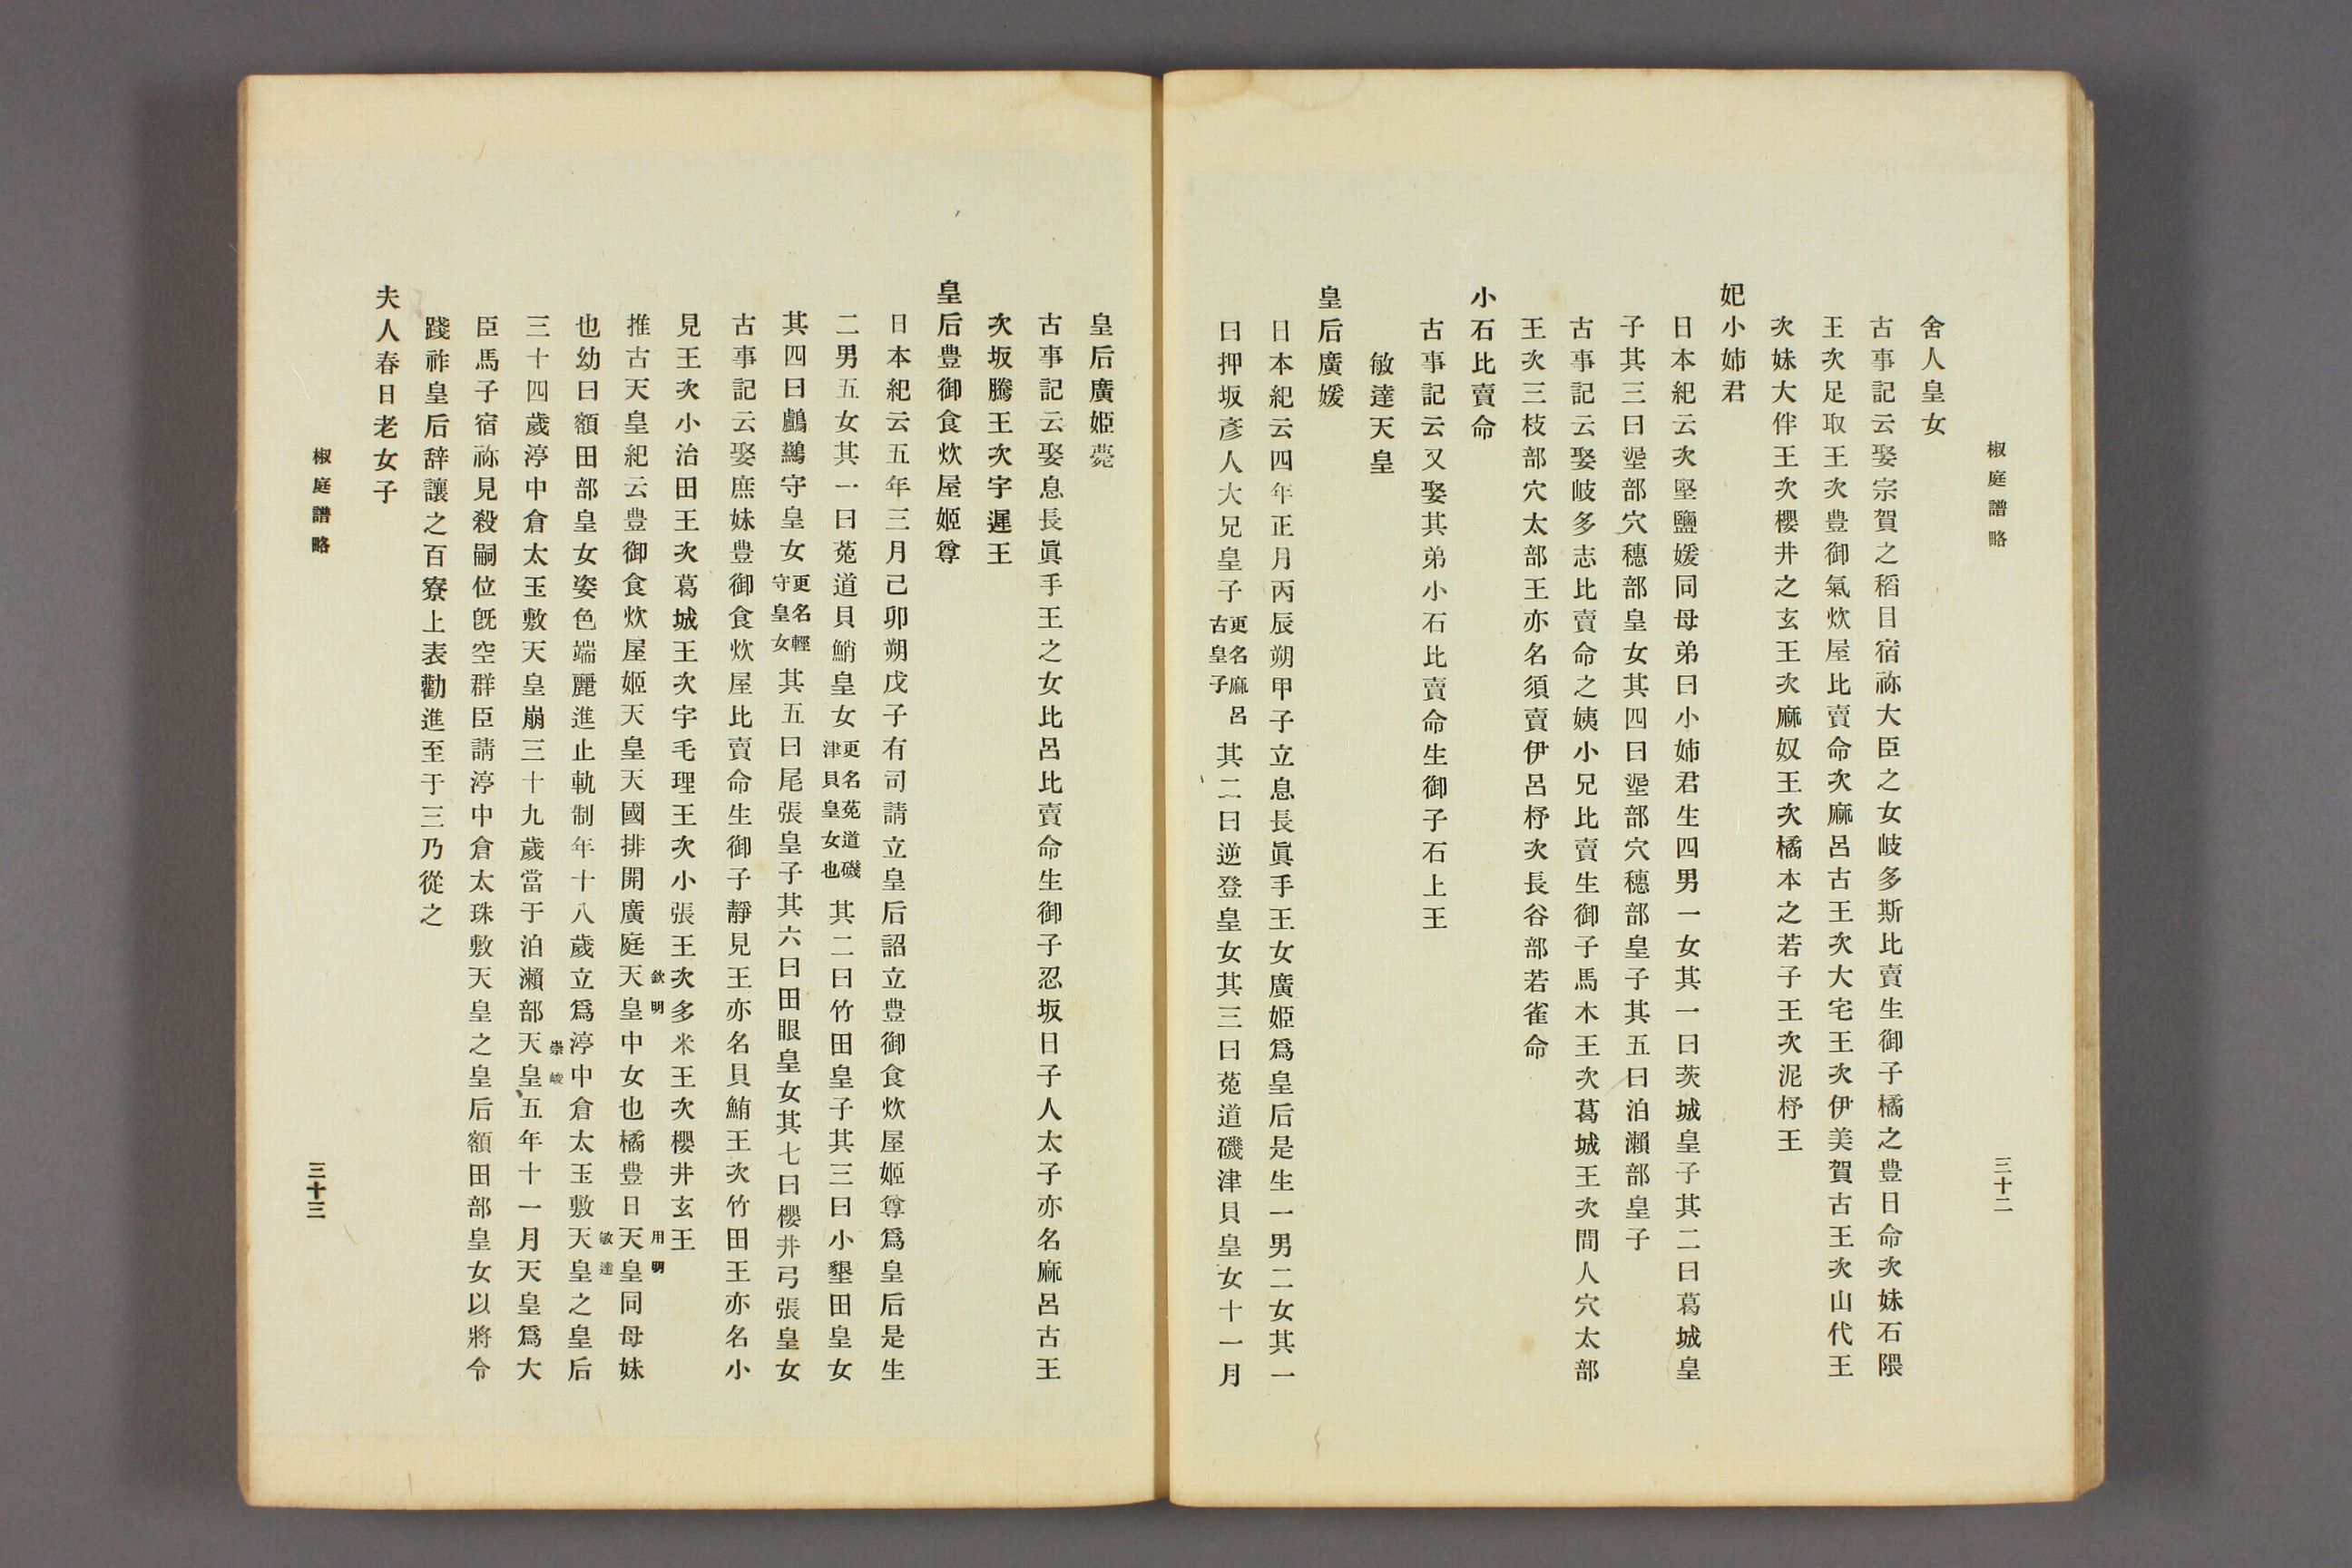 椒庭譜略
三十二
舍人皇女
古事記云娶宗賀之稻目宿祢大臣之女岐多斯比賣生御子橘之豊日命次妹石隈
王次足取王次豊御氣炊屋比賣命次麻呂古王次大宅王次伊美賀古王次山代王
次妹大伴王次櫻井之玄王次麻奴王次橘本之若子王次泥杼王
妃小姉君
日本紀云次堅鹽媛同母弟曰小姉君生四男一女其一曰茨城皇子其二曰葛城皇
子其三曰埿部穴穗部皇女其四曰埿部穴穗部皇子其五曰泊瀨部皇子
古事記云娶岐多志比賣命之姨小兄比賣生御子馬木王次葛城王次間人穴太部
王次三枝部穴太部王亦名須賣伊呂杼次長谷部若雀命
小石比賣命
古事記云又娶其弟小石比賣命生御子石上王
敏達天皇
皇后廣媛
日本紀云四年正月丙辰朔甲子立息長眞手王女廣姬爲皇后是生一男二女其一
曰押坂彥人大兄皇子更名麻呂古皇子其二曰逆登皇女其三曰菟道磯津貝皇女十一月
皇后廣姬薨
古事記云娶息長眞手王之女比呂比賣命生御子忍坂日子人太子亦名麻呂古王
次坂騰王次宇遲王
皇后豊御食炊屋姬尊
日本紀云五年三月己卯朔戊子有司請立皇后詔立豊御食炊屋姬尊爲皇后是生
二男五女其一曰菟道貝鮹皇女更名菟道磯津貝皇女也其二曰竹田皇子其三曰小墾田皇女
其四曰鸕鷀守皇女更名輕守皇女其五曰尾張皇子其六曰田眼皇女其七曰櫻井弓張皇女
古事記云娶庶妹豊御食炊屋比賣命生御子靜見王亦名貝鮹王次竹田王亦名小
見王次小治田王次葛城王次宇毛理王次小張王次多米王次櫻井玄王
推古天皇紀云豊御食炊屋姬天皇天國排開廣庭天皇欽明中女也橘豊日天皇用明同母妹
也幼曰額田部皇女姿色端麗進止軌制年十八歲立爲渟中倉太玉敷天皇敏達之皇后
三十四歲渟中倉太玉敷天皇崩三十九歲當于泊瀨部天皇崇峻五年十一月天皇爲大
臣馬子宿祢見殺嗣位旣空群臣請渟中倉太珠敷天皇之皇后額田部皇女以將令
踐祚皇后辞讓之百寮上表勸進至于三乃從之
夫人春日老女子
椒庭譜略
三十三